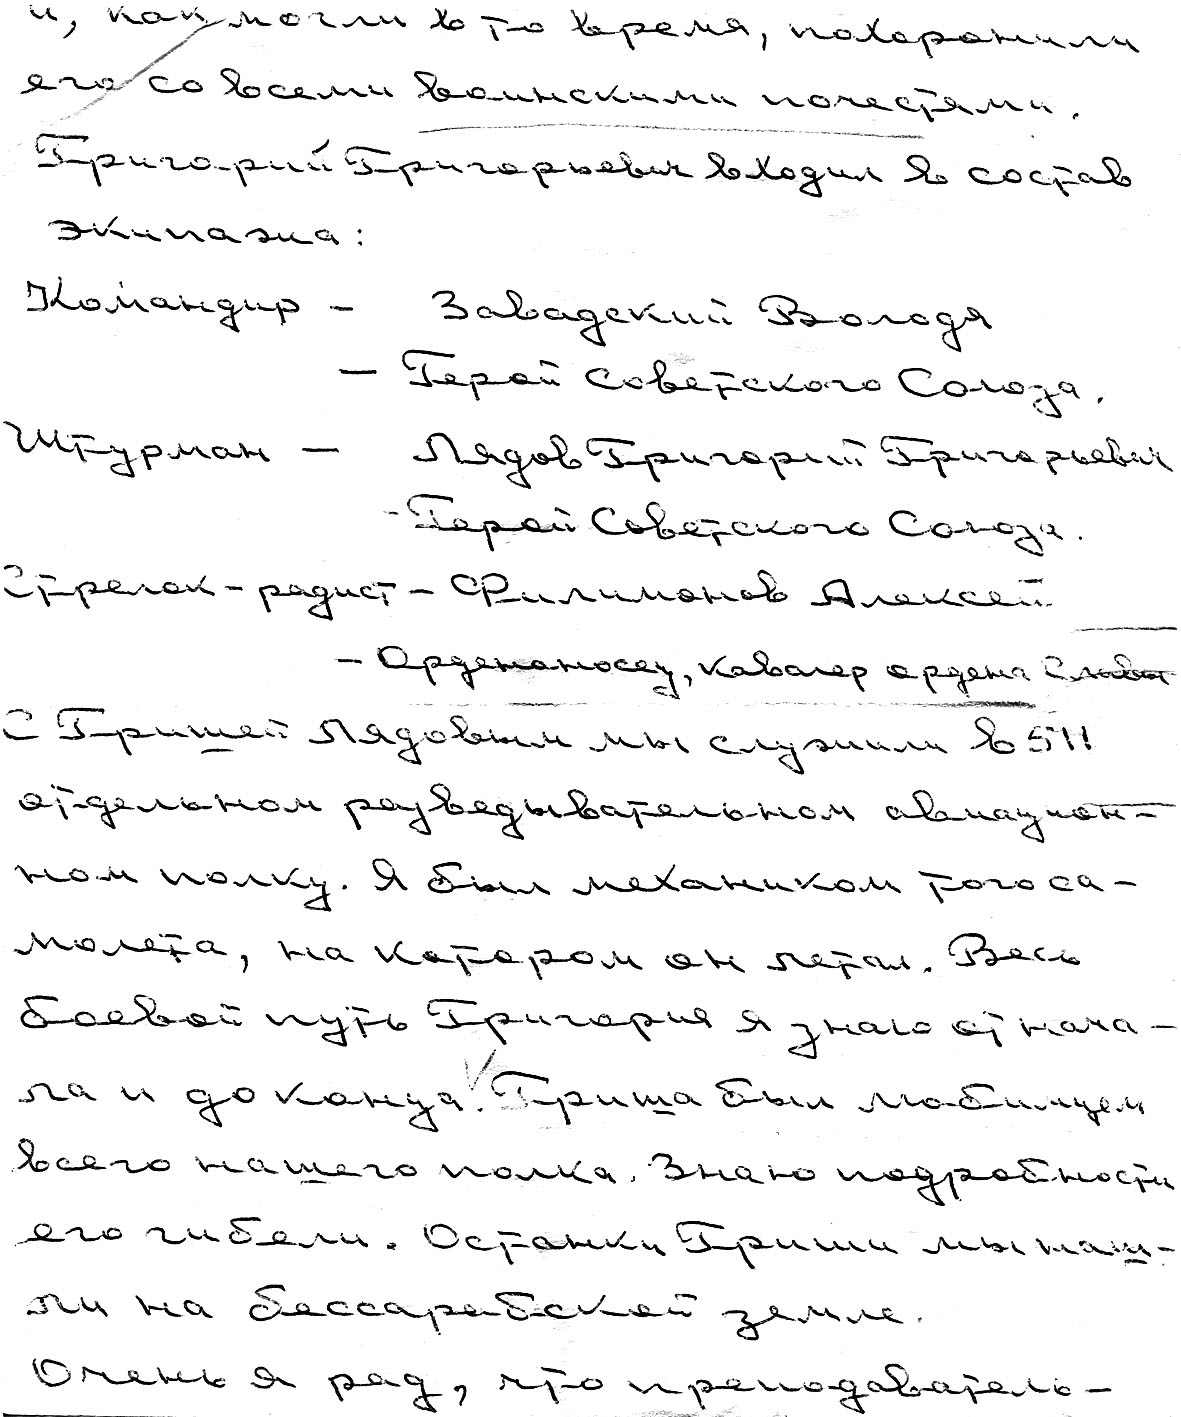 и, как могли в то время, похоронили
его со всеми воинскими почестями.
Григорий Григорьевич входил в состав
экипажа:
Командир – Завадский Володя
– Герой Советского Союза.
Штурман – Лядов Григорий Григорьевич
- Герой Советского Союза.
Стрелок-радист – Филимонов Алексей
– Орденоносец, кавалер ордена Славы
С Гришей Лядовым мы служили в 511
отдельном разведывательном авиацион-
ном полку. Я был механиком того са-
молета, на котором он летал. Весь
боевой путь Григория я знаю от нача-
ла и до конца. Гриша был любимцем
всего нашего полка. Знаю подробности
его гибели. Останки Гриши мы наш-
ли на бессарабской земле.
Очень я рад, что преподаватель-